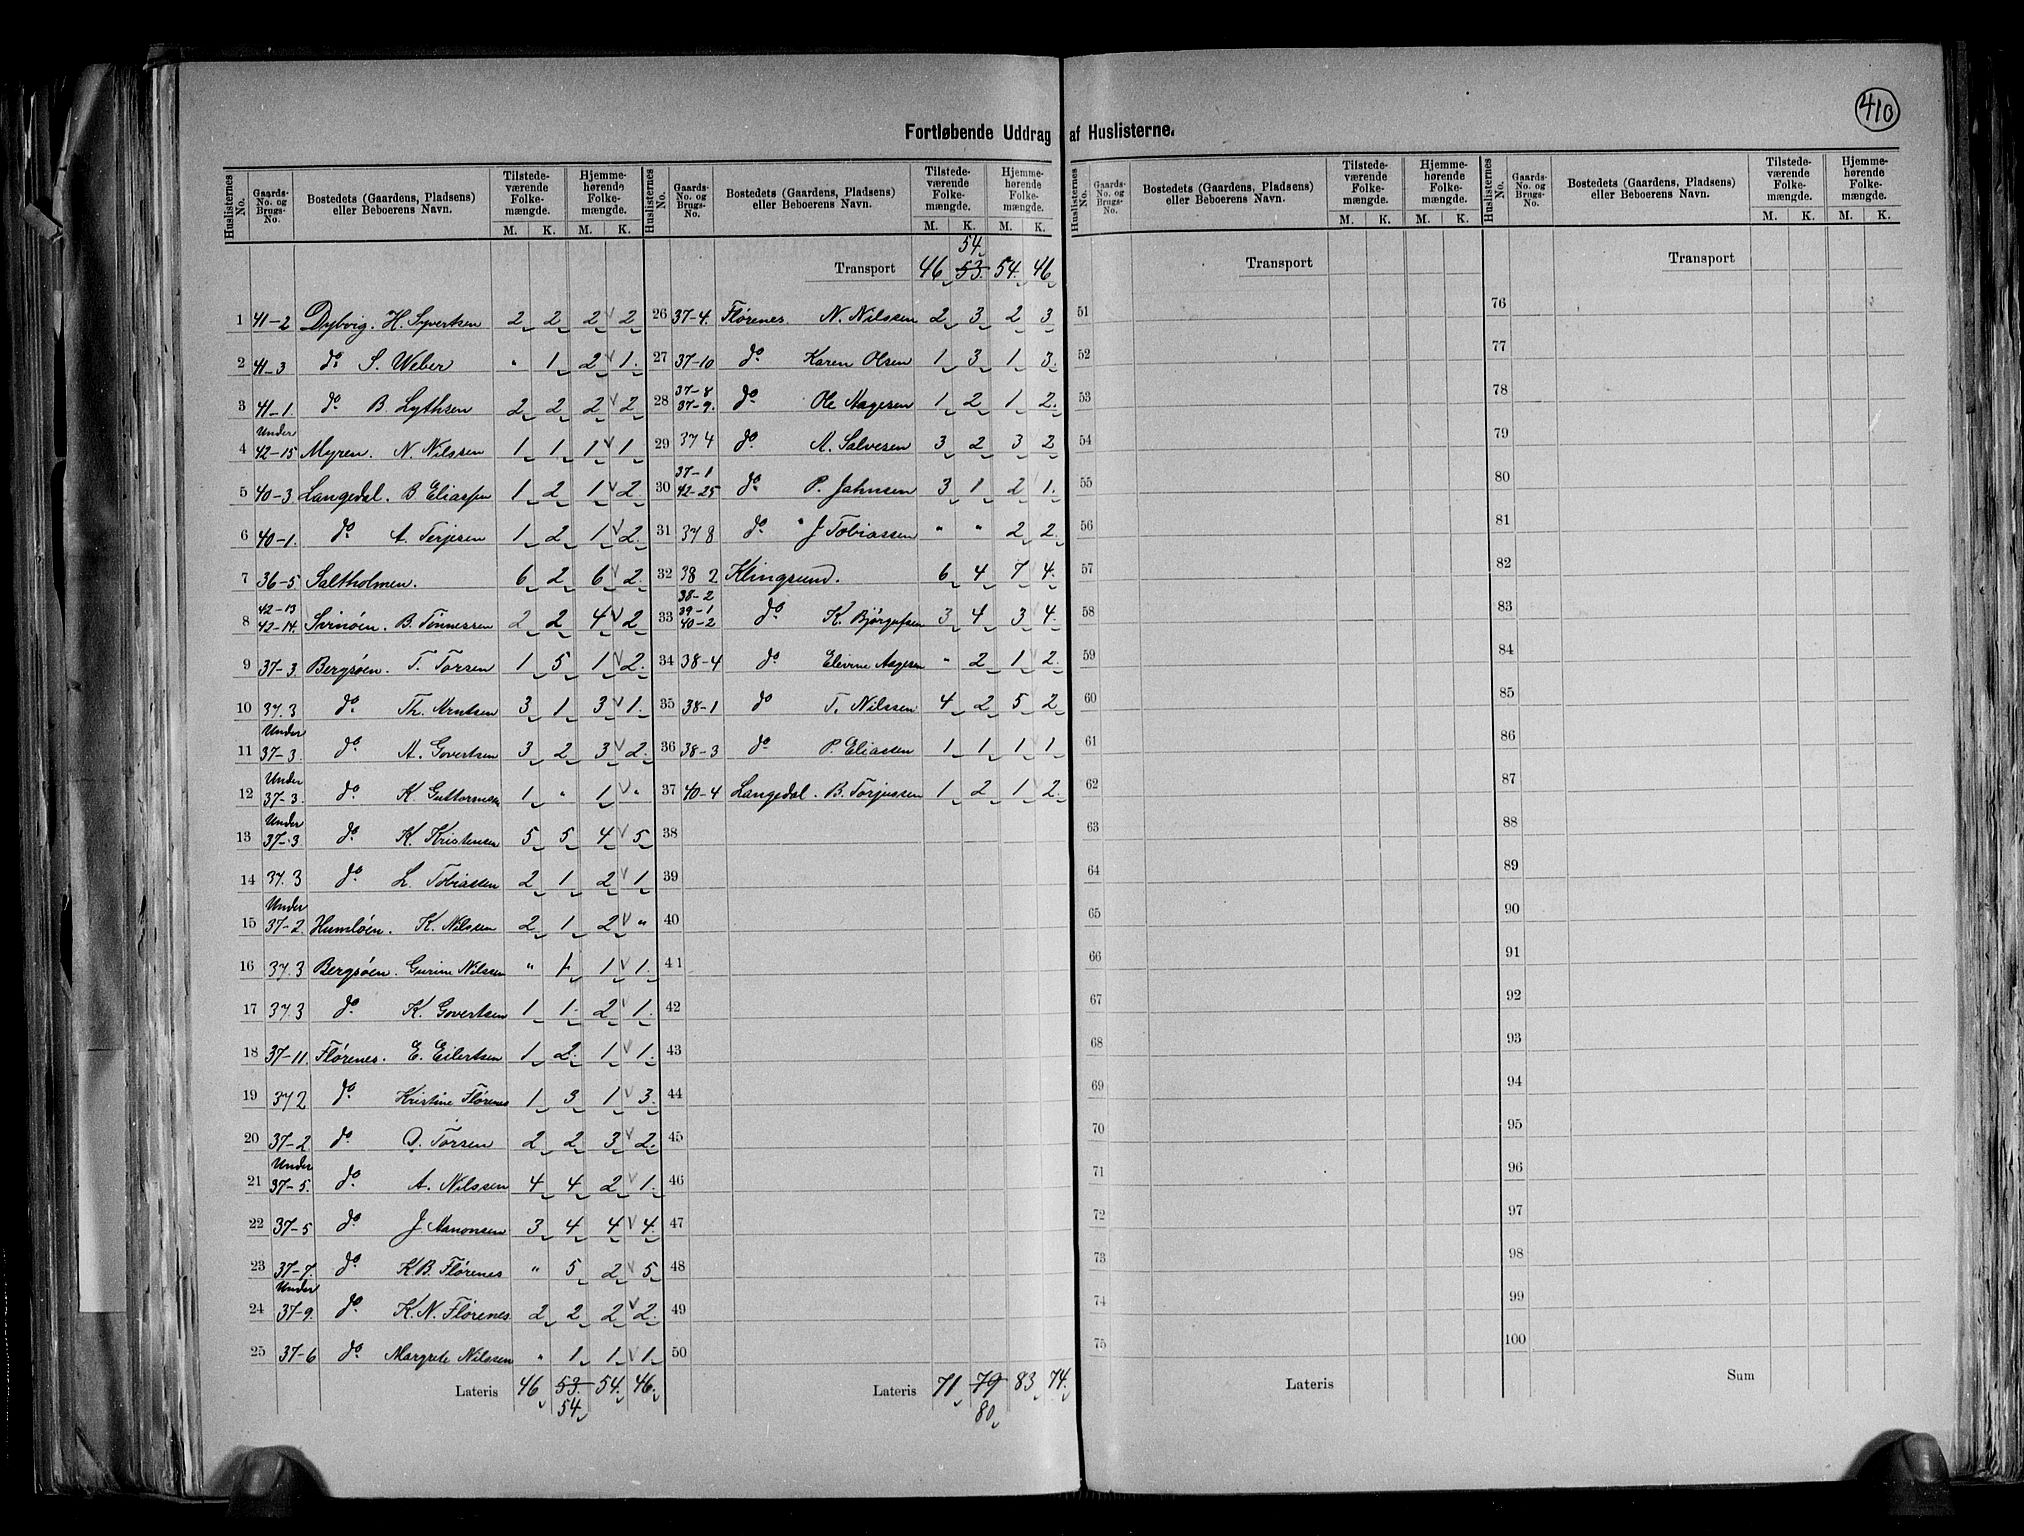 410
Fortløbende Uddrag af Huslisterne.
Huslisternes No. Gaards-No. og Brugs-No. Bostedets (Gaardens, Pladsens) eller Beboerens Navn. Tilstedeværende Folkemængde. M. K. Hjemmehørende Folkemængde. M. K.
1 41-2 Dybvig. H. Syvertsen 2 2 2 2
2 41-3 do S. Weber " 1 2 1.
3 41-1. do B. Lythsen 2 2 2 2
4 Under 42-15 Myren. N. Nilssen 1 1. 1 1.
5 40-3 Langedal. B Eliassen 1 2 1 2.
6 40-1. do A. Terjesen 1 2 1 2.
7 36-5 Saltholmen. 6 2 6 2.
8 42-13 42-14. Svinöen. B. Tönnessen 2 2 4 2
9 37-3. Bergsöen. T. Torsen 1 5 1 2.
10 37.3 do Th. Arntsen 3 1 3 1.
11 Under 37-3. do A. Govertsen 3 2 3 2.
12 Under 37-3. do K. Guttormsen 1 " 1 "
13 Under 37-3 do K. Kristensen 5 5 4 5
14 37.3 do L. Tobiassen 2 1 2 1
15 Under 37-2. Humlöen. K. Nilssen 2 1 2 "
16 37.3 Bergsöen. Gurine Nilssen " 1 1 1.
17 37.3 do K. Govertsen 1 1. 2 1.
18 37-11. Flörenes. E. Eilertsen 1 2. 1 1.
19 37 2 do Kristine Flörenes 1 3 1 3.
20 37-2 do O. Torsen 2 2 3 2
21 Under 37-5. do A. Nilssen 4 4 2 1.
22 37-5 do J. Aanonsen 3 4 4 4.
23 37-7. do K.B. Flörenes " 5 2 5
24 Under 37-9. do K.N. Flörenes 2 2 2 2.
25 37-6 do Margrete Nilssen " 1 1 1
Lateris 46 53. 54. 46.
54.
Huslisternes No. Gaards-No. og Brugs-No. Bostedets (Gaardens, Pladsens) eller Beboerens Navn. Tilstedeværende Folkemængde. M. K. Hjemmehørende Folkemængde. M. K.
54
Transport 46 53. 54. 46
26 37-4. Flörenes N. Nilssen 2 3 2 3
27 37-10 do Karen Olsen 1 3 1 3.
28 37-8 37-9. do Ole Aagesen 1 2 1 2.
29 37 4 do A. Salvesen 3 2 3 2
30 37-1 42-25 do P. Jahnsen 3 1 2 1.
31 37 8 do J Tobiassen " " 2 2.
32 38 2 Klingsund. 6 4 7 4.
33 38-2 39-1 40-2 do K. Bjørgufsen 3 4 3 4.
34 38-4 do Elevine Aagesen " 2 1 2.
35 38-1 do T. Nilssen 4 2 5 2
36 38-3 do P. Eliassen 1 1 1 1
37 40-4 Langedal. B. Torjussen 1 2 1 2.
38
39
40
41
42
43
44
45
46
47
48
49
50
Lateris 71 79 83 74.
80
Huslisternes No. Gaards-No. og Brugs-No. Bostedets (Gaardens, Pladsens) eller Beboerens Navn. Tilstedeværende Folkemængde. M. K. Hjemmehørende Folkemængde. M. K.
Transport
51
52
53
54
55
56
57
58
59
60
61
62
63
64
65
66
67
68
69
70
71
72
73
74
75
Lateris
Huslisternes No. Gaards-No. og Brugs-No. Bostedets (Gaardens, Pladsens) eller Beboerens Navn. Tilstedeværende Folkemængde. M. K. Hjemmehørende Folkemængde. M. K.
Transport
76
77
78
79
80
81
82
83
84
85
86
87
88
89
90
91
92
93
94
95
96
97
98
99
100
Sum